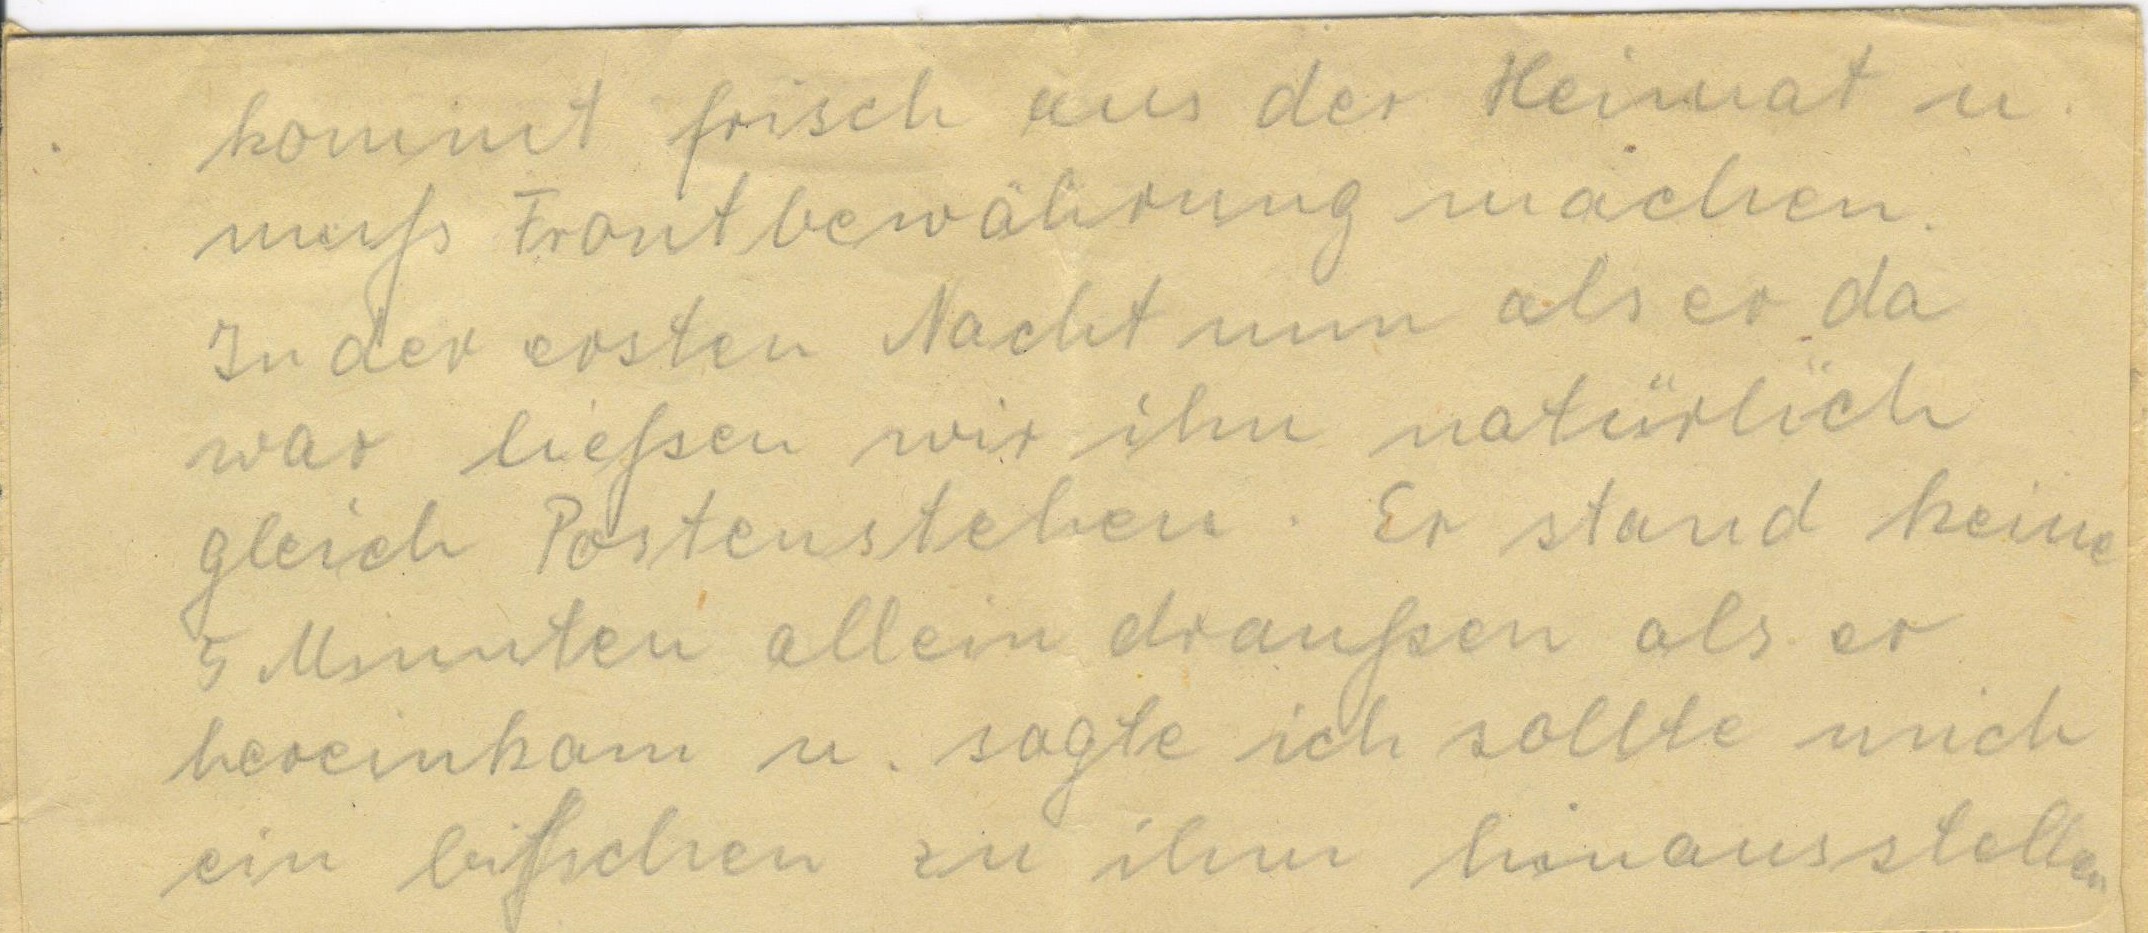 kommt frisch aus der Heimat u.
muß Frontbewährung machen.
In der ersten Nacht nun als er da
war ließen wir ihn natürlich
gleich Postenstehen. Er stand keine
5 Minuten allein draußen als er
hereinkam u. sagte ich sollte mich
ein bißchen zu ihm hinausstellen